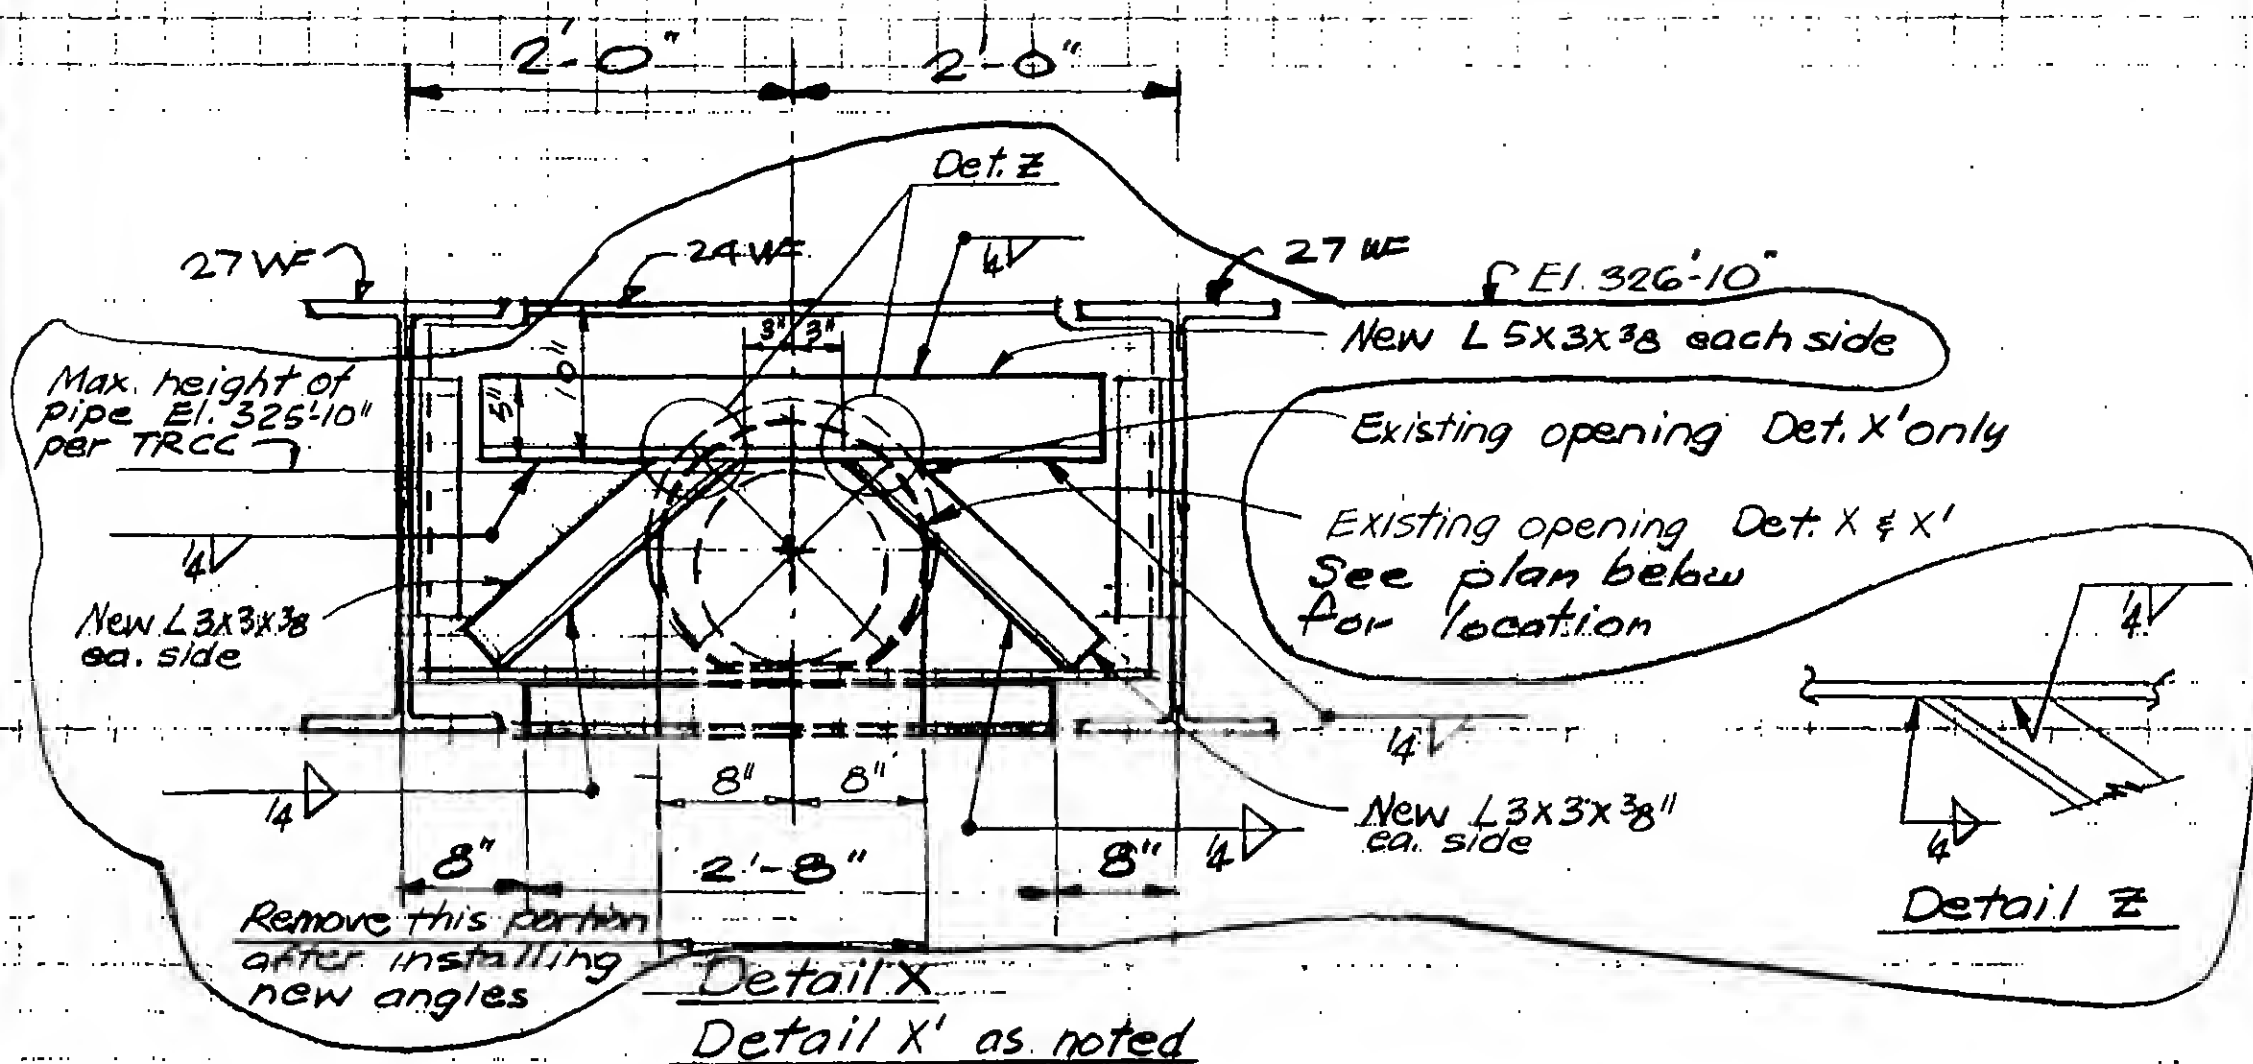 2'-0"
2'-0"
Det. Z
1/4
27 WF
24 WF
27 WF
El. 326'-10"
3"
3"
10"
5"
New L 5x3x3/8 each side
Max. height of
pipe El. 325'-10"
per TRCC
Existing opening Det. X' only
Existing opening Det. X & X'
See plan below
for location
1/4
New L3x3x3/8
ea. side
1/4
1/4
8"
8"
1/4
New L3x3x3/8"
ea. side
1/4
1/4
8"
2'-8"
8"
Detail Z
Remove this portion
after installing
new angles
Detail X
Detail X' as noted